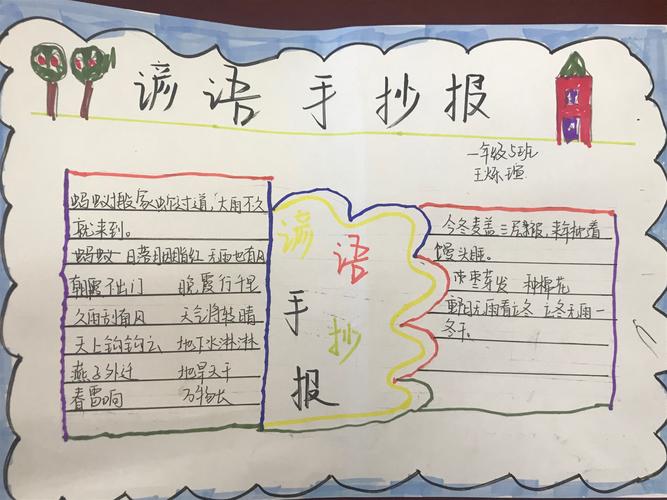 谚语手抄报
一年级5班
王烁瑄
蚂蚁搬家蛇过道,大雨不久
就来到。
蚂蚁 日落胭脂红 无雨也有风
朝霞不出门 晚霞行千里
久雨刮南风 天气将转晴
天上钩钩云 地下水淋淋
燕子外迁 地旱又干
春雷响 万物长
谚
语
手
抄
报
今冬麦盖三层被,来年枕着
馒头睡。
枣芽发 种棉花
无雨看立冬 立冬无雨一
冬干